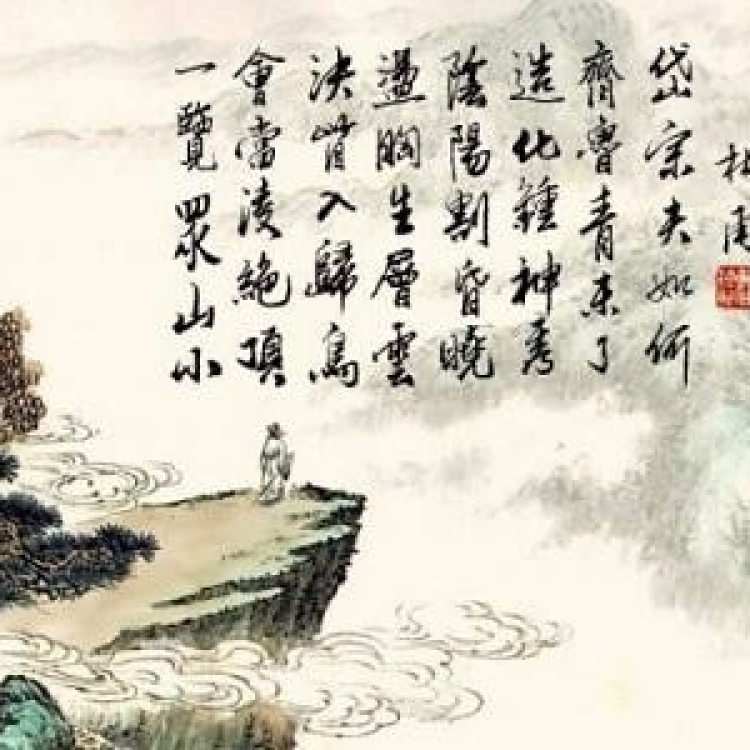 岱宗夫如何
齊魯青未了
造化鍾神秀
陰陽割昏曉
盪胸生層雲
決眥入歸鳥
會當淩絕頂
一覽眾山小